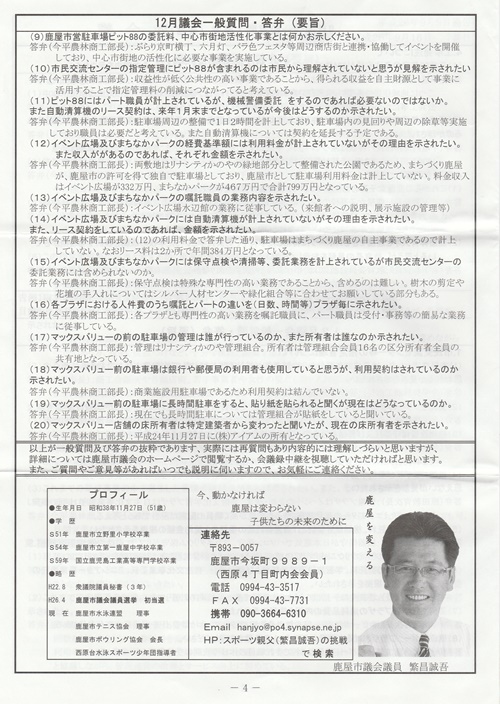 12月議会一般質問・答弁（要旨）
（9）鹿屋市営駐車場ピット88の委託料、中心市街地活性化事業とは何かお示しください。
答弁（今平農林商工部長）：ぶらり京町横丁、六月灯、バラ色フェスタ等周辺商店街と連携・協働してイベントを開催
しており、中心市街地の活性化に必要な事業を実施している。
（10）市民交流センターの指定管理にピット88が含まれるのは市民から理解されていないと思うが見解を示されたい
答弁（今平農林商工部長）：収益性が低く公共性の高い事業であることから、得られる収益を自主財源として事業に
活用することで指定管理料の削減につながってると考えている。
（11）ピット88にはパート職員が計上されているが、機械警備委託 をするのであれば必要ないのではないか。
また自動清算機のリース契約は、来年1月末までとなっているが今後はどうするのか示されたい。
答弁（今平農林商工部長）：駐車場周辺の整備で1日2時間を計上しており、駐車場内の見回りや周辺の除草等実施
しており職員は必要だと考えている。また自動清算機については契約を延長する予定である。
（12）イベント広場及びまちなかパークの経費基準額には利用料金が計上されていないがその理由を示されたい。
また収入がるがあるのであれば、それぞれ金額を示されたい。
答弁（今平農林商工部長）：両敷地はリナシティかのやの緑地部分として整備された公園であるため、まちづくり鹿屋
が、鹿屋市の許可を得て独自で駐車場としており、鹿屋市として駐車場利用料金は計上していない。料金収入
はイベント広場が332万円、まちなかパークが467万円で合計799万円となっている。
（13）イベント広場及びまちなかパークの嘱託職員の業務内容を示されたい。
答弁（今平農林商工部長）：イベント広場水辺館の業務に従事している。（来館者への説明、展示施設の管理等）
（14）イベント広場及びまちなかパークには自動清算機が計上されていないがその理由を示されたい。
また、リース契約をしているのであれば、金額を示されたい。
答弁（今平農林商工部長）：（12）の利用料金で答弁した通り、駐車場はまちづくり鹿屋の自主事業であるので計上し
ていない。なおリース料は2か所で年間384万円となっている。
（15）イベント広場及びまちなかパークには保守点検や清掃等、委託業務を計上されているが市民交流センターの
委託業務には含められないのか。
答弁（今平農林商工部長）：保守点検は特殊な専門性の高い業務であることから、含めるのは難しい。樹木の剪定や
花壇の手入れについてはシルバー人材センターや緑化組合等に合わせてお願いしている部分もある。
（16）各プラザにおける人件費のうち嘱託とパートの違いを（日数、時間等）プラザ毎に示されたい。
答弁（今平農林商工部長）：各プラザとも専門性の高い業務を嘱託職員に、パート職員は受付・事務等の簡易な業務
に従事している。
（17）マックスバリューの前の駐車場の管理は誰が行っているのか、また所有者は誰なのか示されたい。
答弁（今平農林商工部長）：管理はリナシティかのや管理組合。所有者は管理組合会員16名の区分所有者全員の
共有地となっている。
（18）マックスバリュー前の駐車場は銀行や郵便局の利用者も使用していると思うが、利用契約はされているのか
示されたい。
答弁（今平農林商工部長）：商業施設用駐車場であるため利用契約は結んでいない。
（19）マックスバリュー前の駐車場に長時間駐車をすると、貼り紙を貼られると聞くが現在はどうなっているのか。
答弁（今平農林商工部長）：現在でも長時間駐車については管理組合が貼紙をしていると聞いている。
（20）マックスバリュー店舗の床所有者は特定建築者から変わったと聞いたが、現在の床所有者を示されたい。
答弁（今平農林商工部長）：平成24年11月27日に（株）アイアムの所有となっている。
以上が一般質問及び答弁の抜粋であります、実際には再質問もあり内容的には理解しづらいと思いますが、
詳細については鹿屋市議会のホームページで閲覧するか、会議録中継を視聴していただければと思います。
また、ご質問やご意見等があればいつでも説明に伺いますので、お気軽にご連絡ください。
プロフィール
●生年月日 昭和38年11月27日（51歳）
●学 歴
S51年 鹿屋市立野里小学校卒業
S54年 鹿屋市立第一鹿屋中学校卒業
S59年 国立鹿児島工業高等専門学校卒業
●略 歴
H22.8 衆議院議員秘書（3年）
H26.4 鹿屋市議会議員選挙 初当選
現 在 鹿屋市水泳連盟 理事
鹿屋市テニス協会 理事
鹿屋市ボウリング協会 会長
西原台水泳スポーツ少年団指導者
今、動かなければ
鹿屋は変わらない
子供たちの未来のために
連絡先
〒893-0057
鹿屋市今坂町9989－1
（西原4丁目町内会会員）
電話 0994-43-3517
FAX 0994-43-7731
携帯 090-3664-6310
Email hanjyo@po4.synapse.ne.jp
HP：スポーツ親父（繁昌誠吾）の挑戦
で 検索
鹿屋を変える
鹿屋市議会議員 繁昌誠吾
－ 4 －